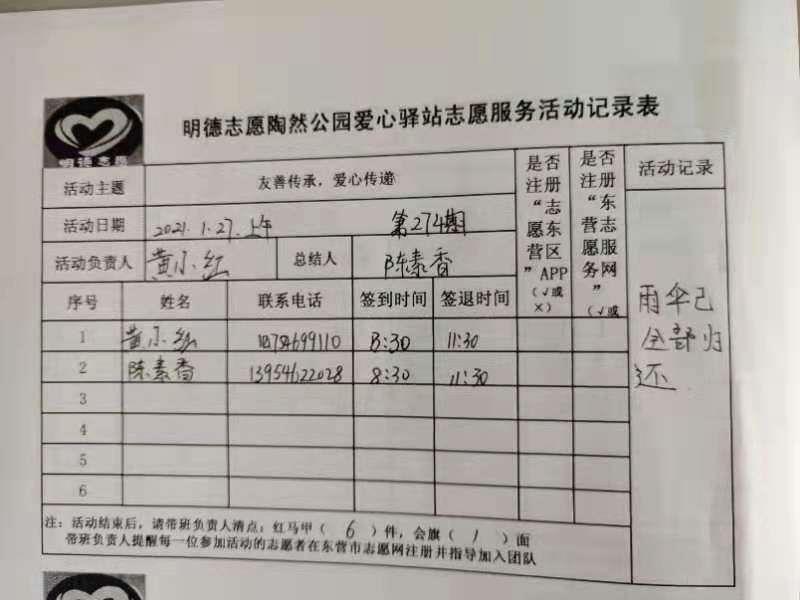 明德志愿陶然公园爱心驿站志愿服务活动记录表
明德志愿
活动主题 友善传承，爱心传递 是否注册“志愿东营区”APP（√或×） 是否注册“东营志愿服务网”（√或 活动记录
活动日期 2021.1.27.上午 第274期
活动负责人 黄小红 总结人 陈素香
序号 姓名 联系电话 签到时间 签退时间
1 黄小红 8:30 11:30
2 陈素香 13954622028 8:30 11:30
3
4
5
6
雨伞已
全部归
还
注：活动结束后，请带班负责人清点：红马甲（ 6 ）件，会旗（ 1 ）面
带班负责人提醒每一位参加活动的志愿者在东营市志愿网注册并指导加入团队